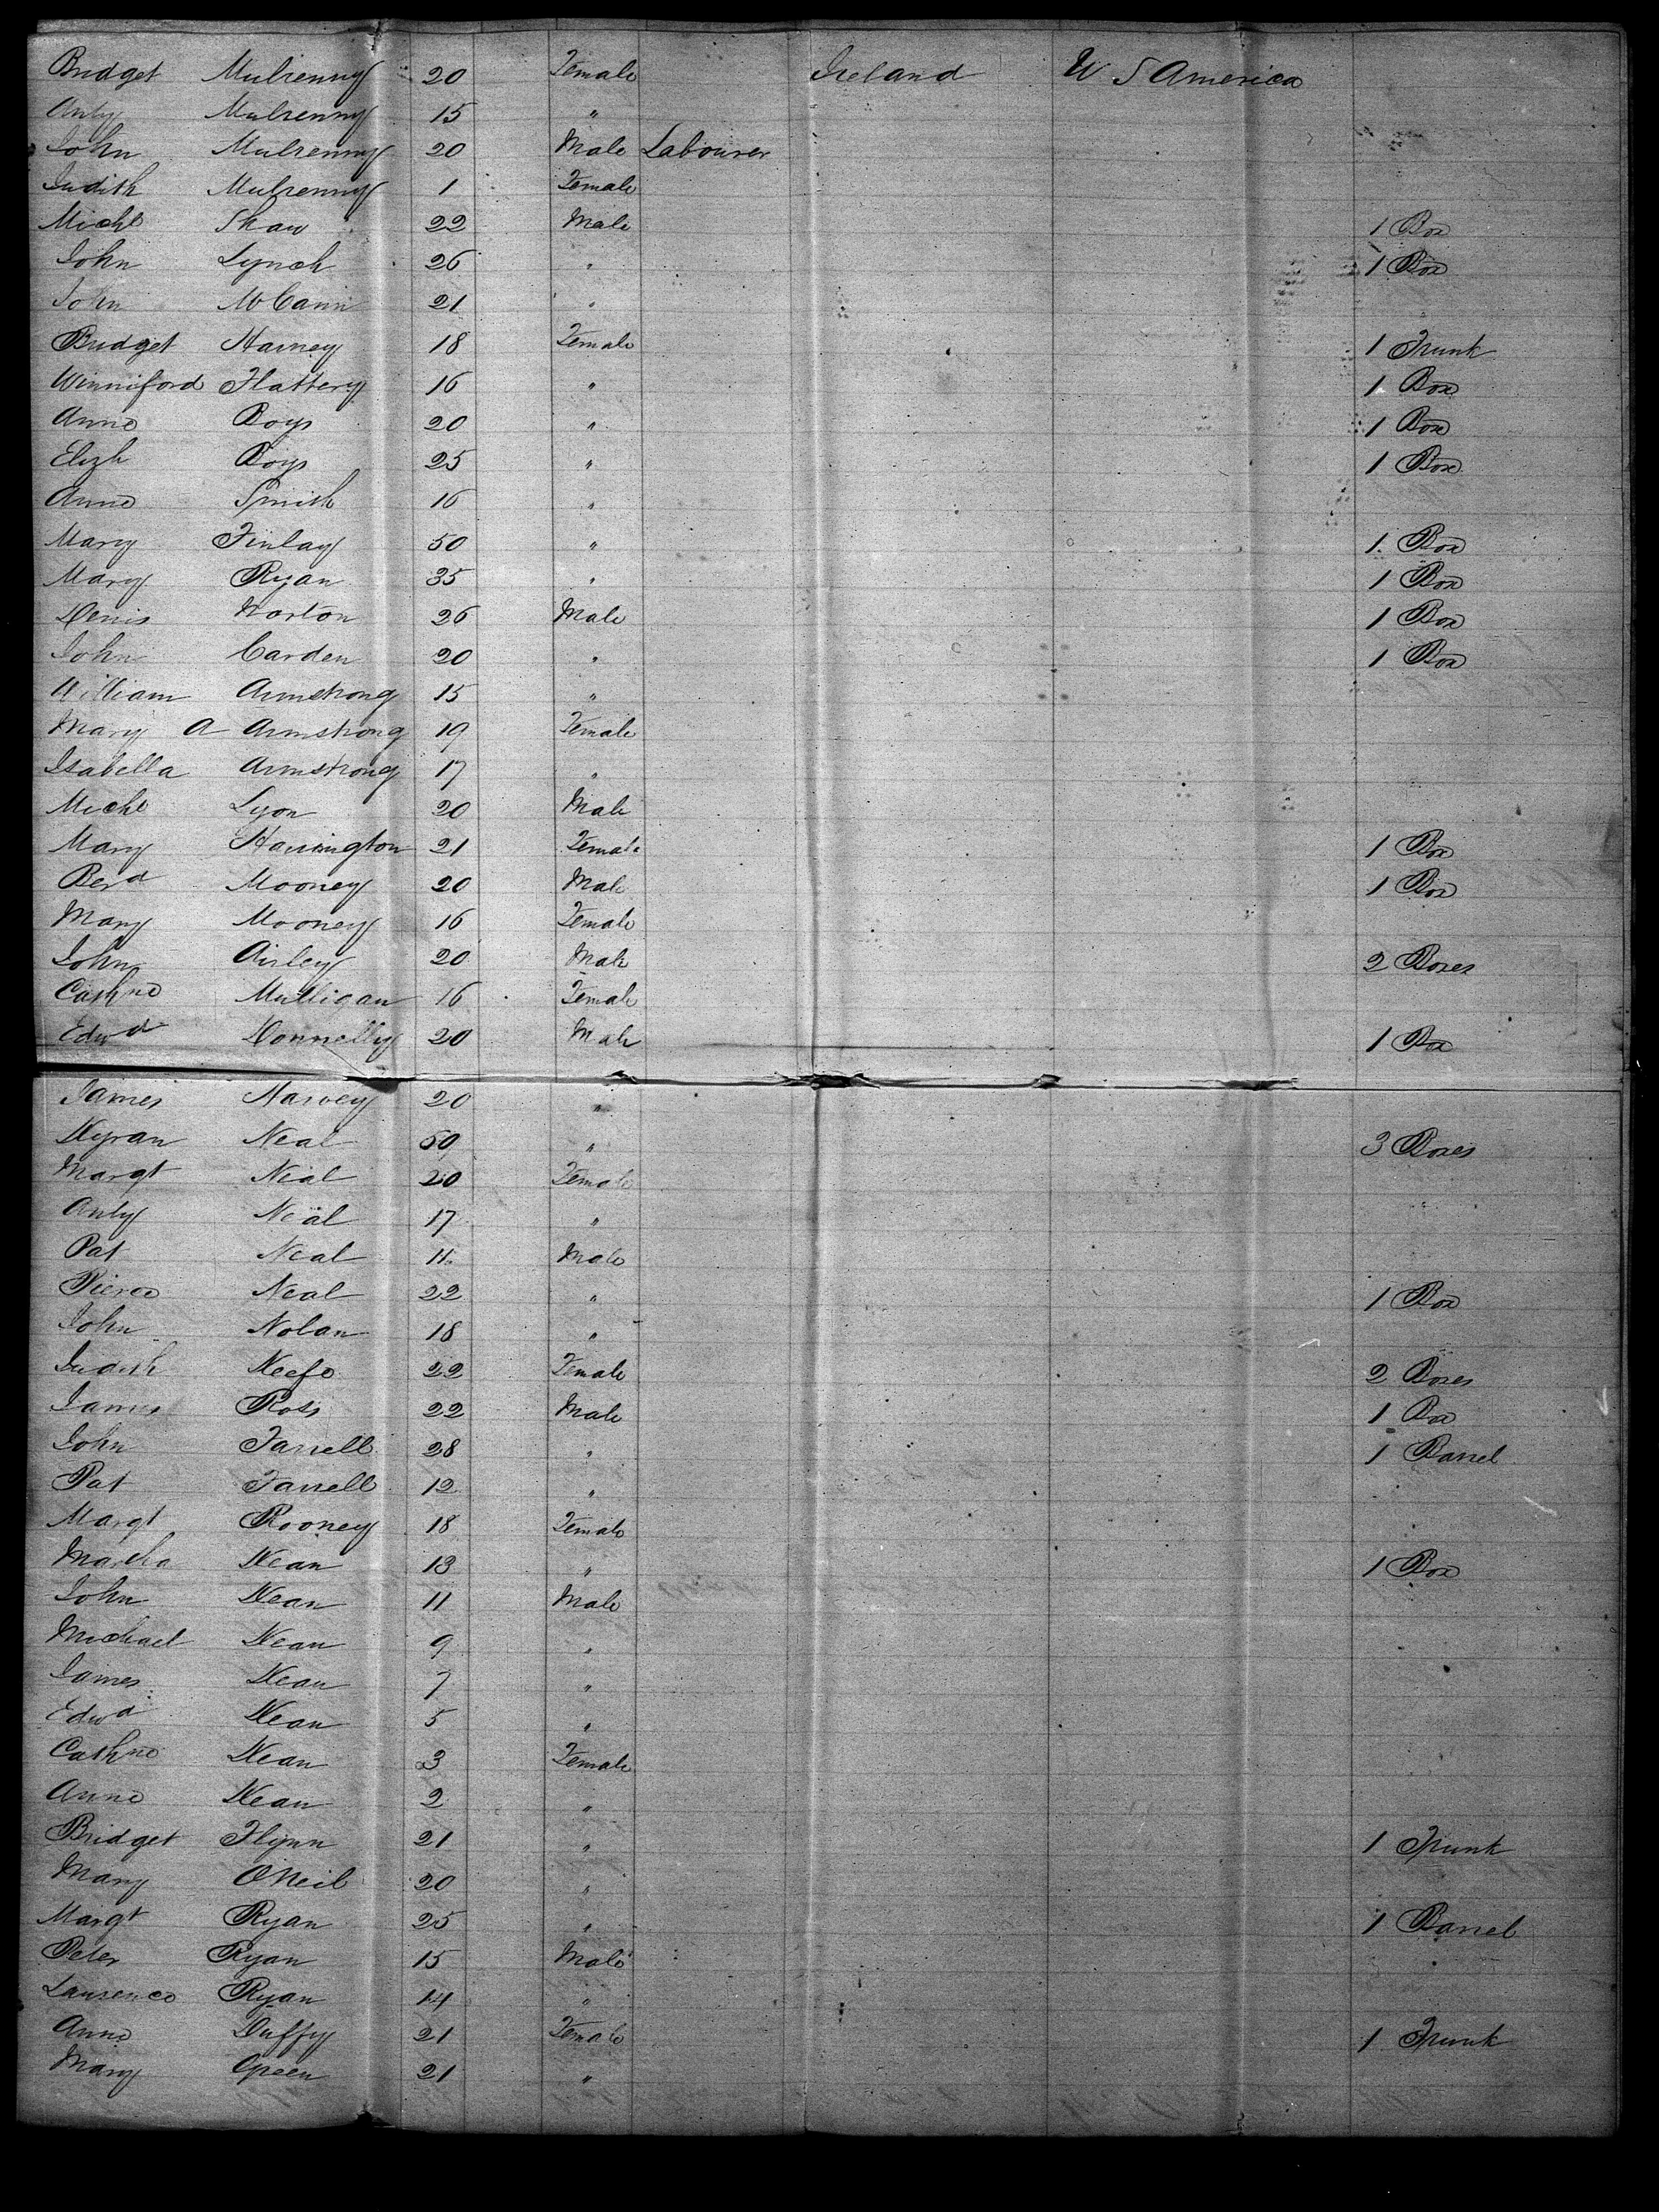 Bridget Mulrenny 20 Female Ireland U S America
Anty Mulrenny 15 "
John Mulrenny 20 Male Labourer
Judith Mulrenny 1 Female
Michl Shaw 22 Male 1 Box
John Lynch 26 " 1 Box
John McCann 21 "
Bridget Harney 18 Female 1 Trunk
Winniford Flattery 16 " 1 Box
Anne Boys 20 " 1 Box
Elizh Boys 25 " 1 Box
Anne Smith 16 "
Mary Finlay 50 " 1 Box
Mary Ryan 35 " 1 Box
Denis Norton 26 Male 1 Box
John Carden 20 " 1 Box
William Armstrong 15 "
Mary A Armstrong 19 Female
Isabella Armstrong 17 "
Michl Lyon 20 Male
Mary Harrington 21 Female 1 Box
Berd Mooney 20 Male 1 Box
Mary Mooney 16 Female
John Airley 20 Male 2 Boxes
Cathne Mulligan 16 Female
Edwd Donnelly 20 Male 1 Box
James Harvey 20 "
Kyran Neal 50 " 3 Boxes
Margt Neal 20 Female
Anty Neal 17 "
Pat Neal 11 Male
Pierce Neal 22 " 1 Box
John Nolan 18 "
Judith Keefe 22 Female 2 Boxes
James Ross 22 Male 1 Box
John Farrell 28 " 1 Barrel
Pat Farrell 12 "
Margt Rooney 18 Female
Martha Kean 13 " 1 Box
John Kean 11 Male
Michael Kean 9 "
James Kean 7 "
Edwd Kean 5 "
Cathne Kean 3 Female
Anne Kean 2 "
Bridget Flynn 21 " 1 Trunk
Mary O'Neil 20 "
Margt Ryan 25 " 1 Barrel
Peter Ryan 15 Male
Laurence Ryan 14 "
Anne Duffy 21 Female 1 Trunk
Mary Green 21 "